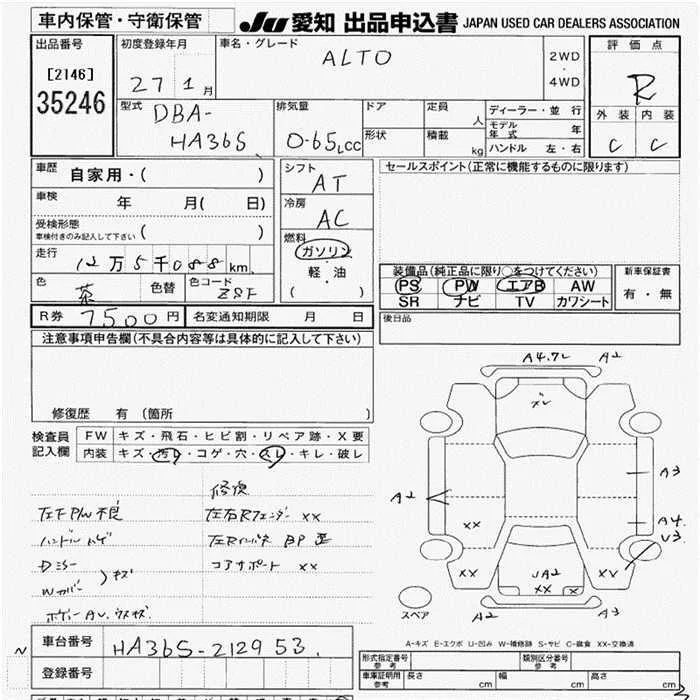 車内保管・守衛保管 JU 愛知 出品申込書 JAPAN USED CAR DEALERS ASSOCIATION
出品番号 [2146] 35246
初度登録年月 27 1月
車名・グレード ALTO
2WD・4WD
評価点 R
型式 DBA-HA36S
排気量 0.65Lcc
ドア
形状
定員 人
積載 kg
ディーラー・並行
モデル年式 年
ハンドル 左・右
外装 C
内装 C
車歴 自家用・( )
車検 年 月( 日)
受検形態
車検付きのみ記入して下さい ( )
走行 12万5千088km
色 茶
色替
色コード
シフト AT
冷房 AC
燃料 ガソリン・軽・油 ( )
セールスポイント(正常に機能するものに限ります)
装備品(純正品に限り○をつけてください)
PS PW エアB AW
SR ナビ TV カワシート
新車保証書 有・無
R券 7500円
名変通知期限 月 日
後日品
注意事項申告欄(不具合内容等は具体的に記入して下さい)
修復歴 有(箇所 )
検査員記入欄
FW キズ・飛石・ヒビ割・リペア跡・X要
内装 キズ・汚レ・コゲ・穴・スレ・キレ・破レ
修復
左F P/W 不良
左右Rフェンダー XX
左Rインパネ BP 歪
コアサポート XX
Dミラー
Wカバー
キズ
A4.7L A2
XV
A2
A3
XX
A4.
U3
XX
XX
JA2
XX
スペア
A2 A3
A-キズ E-エクボ U-凹み W-補修跡 S-サビ C-腐食 XX-交換済
車台番号 HA36S-212953
登録番号
形式指定番号 参考
類別区分番号 参考
車庫証明用 参考
長さ cm
幅 cm
高さ cm